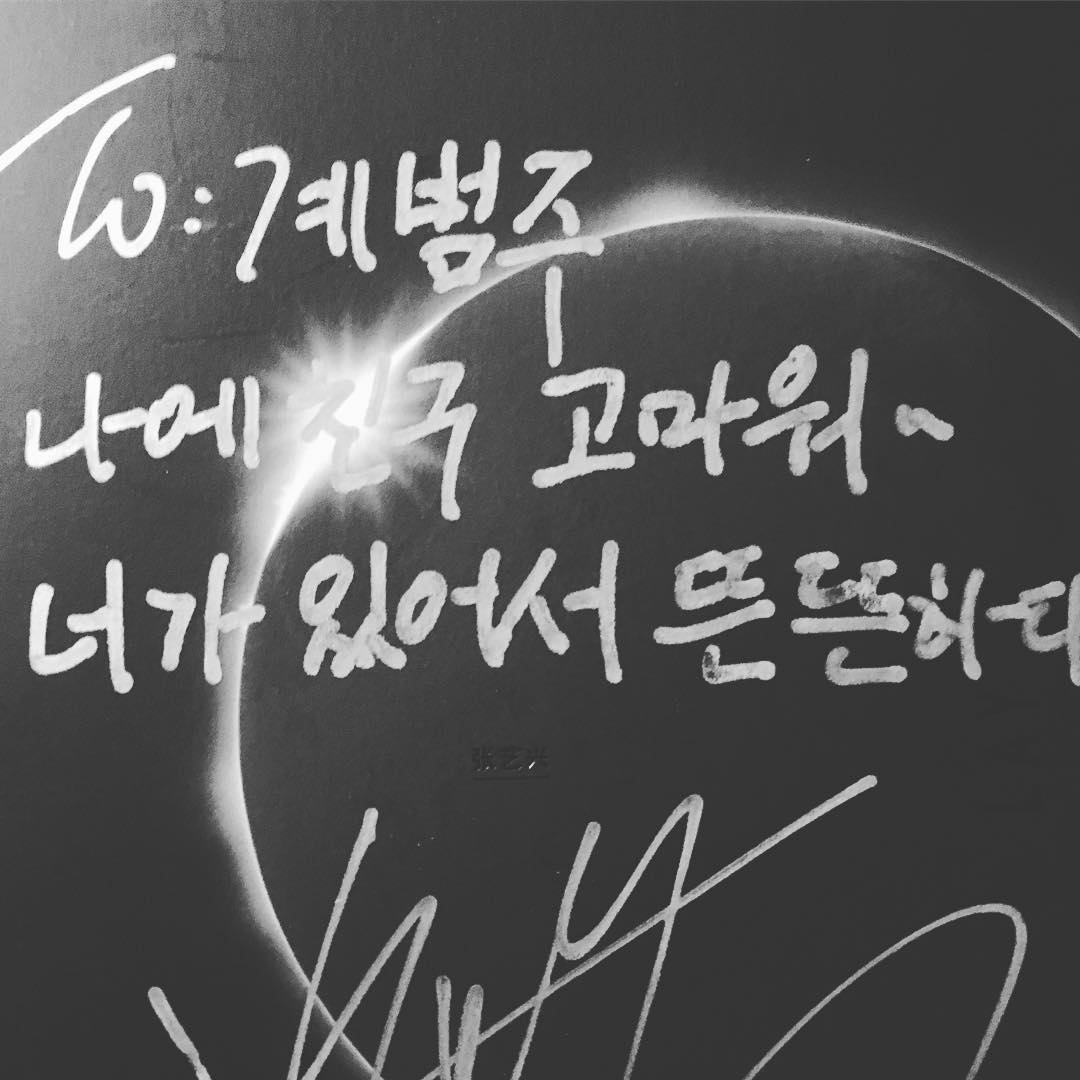 To: 계범주
나에 친구 고마워~
너가 있어서 뜬뜬하다
张艺兴